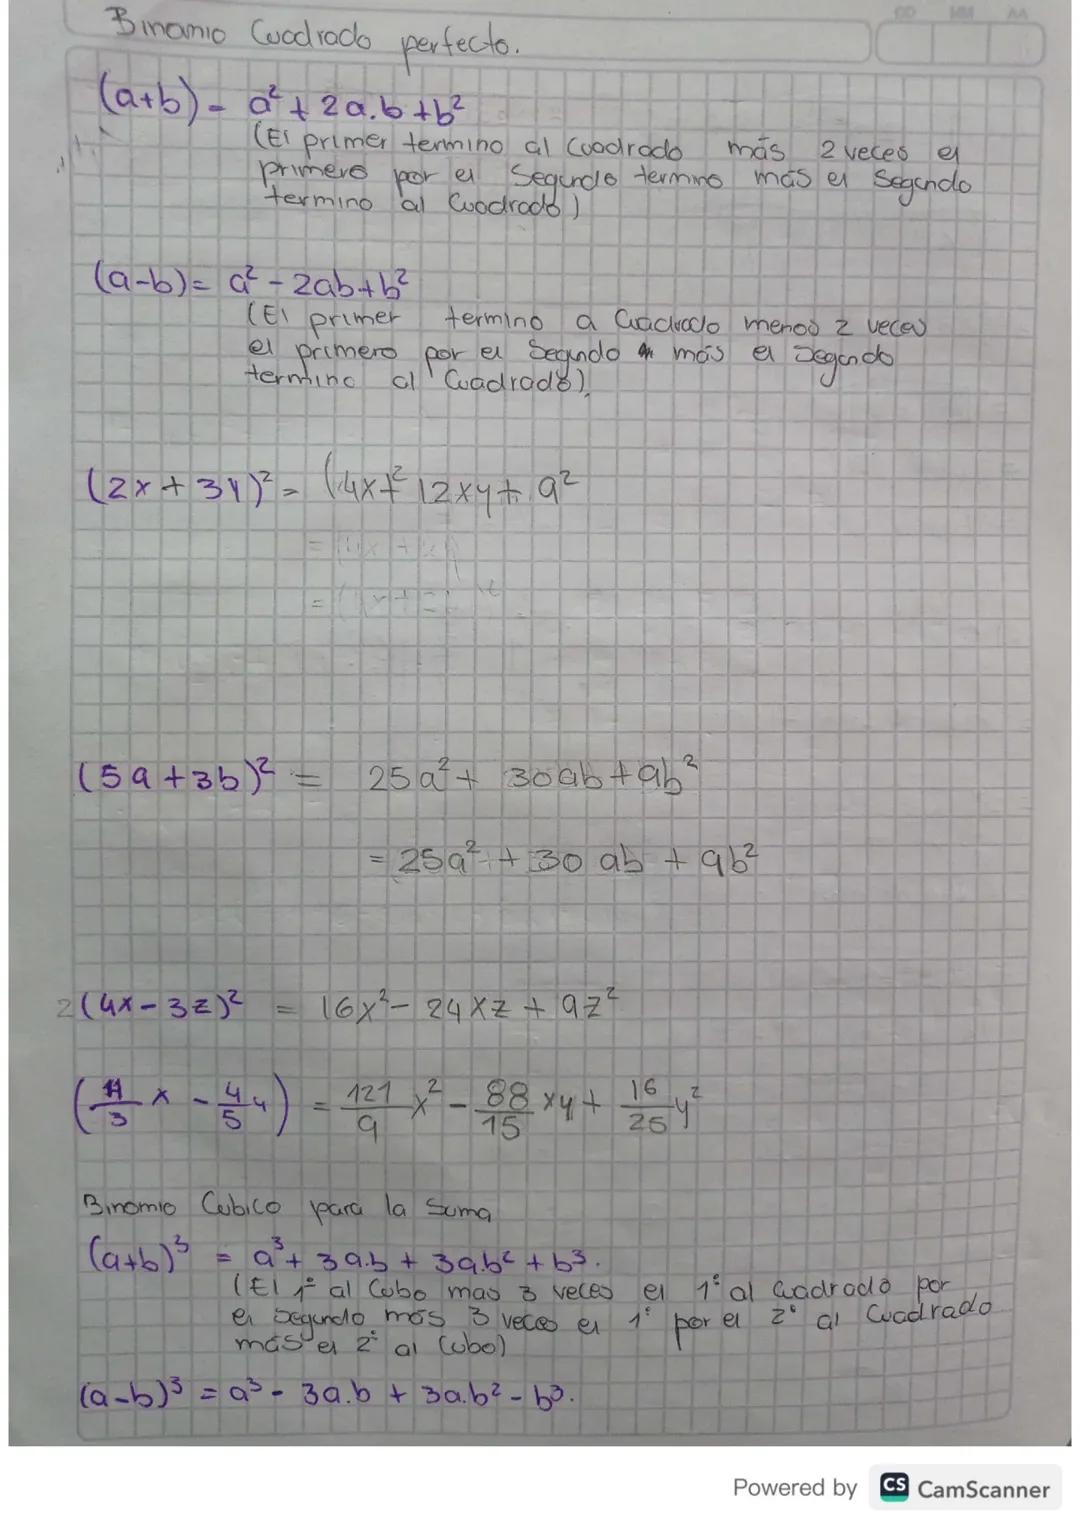 Binomio Cuadrado perfecto.
DD MM AA
(a+b) = a² + 2a.b + b²
(El primer termino al Cuadrado más 2 veces el
primero por el Segundo termino más el Segundo
termino al Cuadrado)
(a-b) = a² - 2ab + b²
(El primer termino a Cuadrado menos 2 veces
el primero por el Segundo más el Segundo
termino al Cuadrado).
(2x + 3y)² = (4x)² + 12xy + 9²
(5a + 3b)² = 25a² + 30ab + 9b²
= 25a² + 30 ab + 9b²
2(4x - 3z)² = 16x² - 24xz + 9z²
(11/3 x - 4/5 y) = 121/9 x² - 88/15 xy + 16/25 y²
Binomio Cubico para la Suma
(a+b)³ = a³ + 3a.b + 3a.b² + b³.
(El 1° al Cubo mas 3 veces el 1° al Cuadrado por
el Segundo más 3 veces el 1° por el 2° al Cuadrado
más el 2° al Cubo)
(a-b)³ = a³ - 3a.b + 3a.b² - b³.
Powered by CS CamScanner